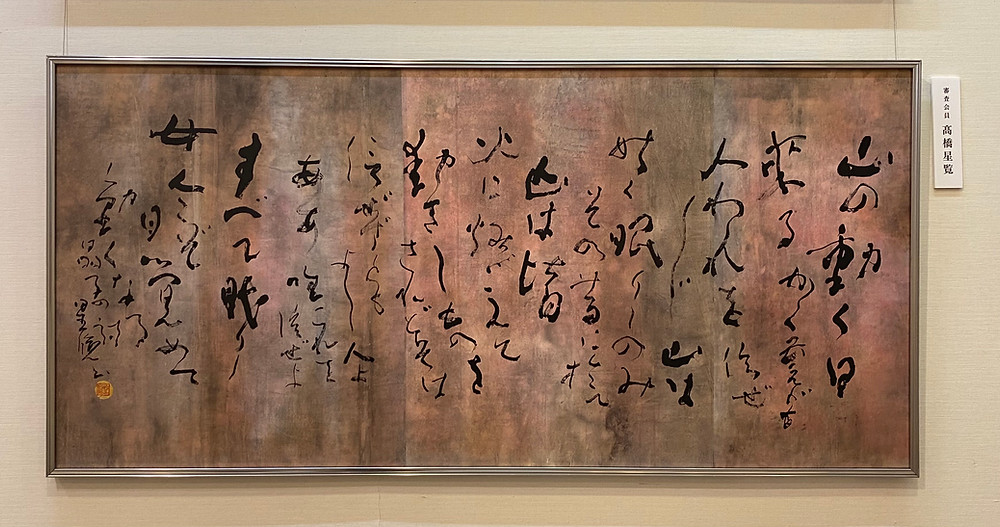 山の動く日
来るかく云へども
人われを信ぜ
じ 山は
姑く眠りしのみ
その昔に於て
山は皆
火に燃えて
動きしものを
されどそは
信ぜずともよし 人よ
ああ 唯これを信ぜよ
すべて眠りし
女今ぞ
目覚めて
動くなる
晶子 星覧
審査会員 高橋星覧